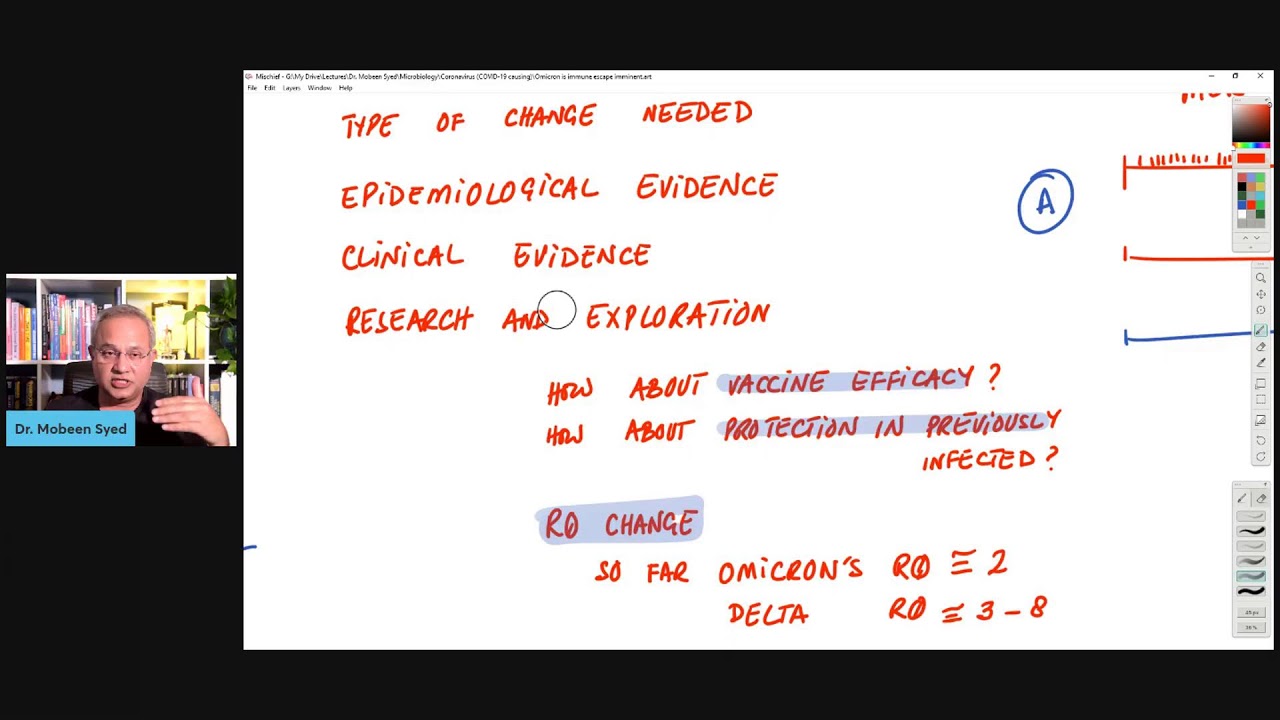 Mischief - G:\My Drive\Lectures\Dr. Mobeen Syed\Microbiology\Coronavirus (COVID-19 causing)\Omicron is immune escape imminent.art
File Edit Layers Window Help
TYPE OF CHANGE NEEDED
EPIDEMIOLOGICAL EVIDENCE
A
CLINICAL EVIDENCE
RESEARCH AND EXPLORATION
HOW ABOUT VACCINE EFFICACY ?
HOW ABOUT PROTECTION IN PREVIOUSLY
INFECTED ?
Dr. Mobeen Syed
RØ CHANGE
SO FAR OMICRON'S RØ ≅ 2
DELTA RØ ≅ 3 - 8